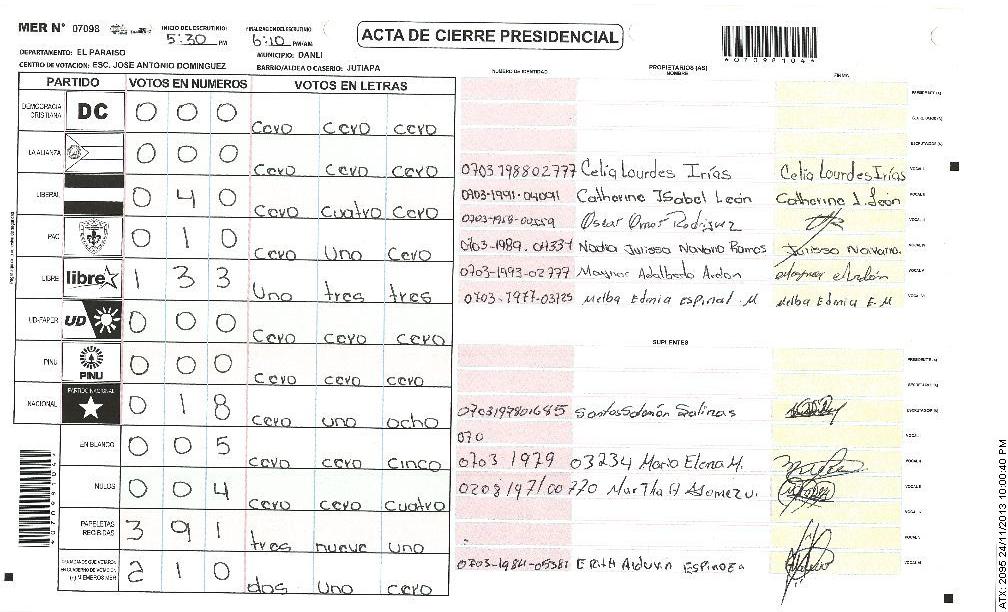 MER N° 07098 INICIO DEL ESCRUTINIO: 5:30 PM FINALIZACION DEL ESCRUTINIO 6:10 PM/AM ACTA DE CIERRE PRESIDENCIAL *07098104*
DEPARTAMENTO: EL PARAISO MUNICIPIO: DANLI
CENTRO DE VOTACION: ESC. JOSE ANTONIO DOMINGUEZ BARRIO/ALDEA O CASERIO: JUTIAPA
NUMERO DE IDENTIDAD PROPIETARIOS (AS) NOMBRE FIRMA
PARTIDO VOTOS EN NUMEROS VOTOS EN LETRAS
DEMOCRACIA CRISTIANA DC 0 0 0 Cero cero cero
LA ALIANZA 0 0 0 Cero Cero cero
LIBERAL 0 4 0 Cero Cuatro Cero
PAC 0 1 0 Cero Uno Cero
LIBRE libre 1 3 3 Uno tres tres
UD-FAPER UD 0 0 0 Cero cero cero
PINU PINU 0 0 0 Cero cero cero
NACIONAL PARTIDO NACIONAL 0 1 8 Cero uno ocho
EN BLANCO 0 0 5 cero cero cinco
NULOS 0 0 4 cero cero cuatro
PAPELETAS RECIBIDAS 3 9 1 tres nueve uno
CIUDADANOS QUE VOTARON 2 1 0 dos Uno cero
0703198802777 Celia Lourdes Irías Celia Lourdes Irías
0703-1991-04091 Catherine Isabel León Catherine I. León
Oscar Omar Rodriguez
0703-1989-04337 Nadia Julissa Navarro Ramos Julissa Navarro
0703-1993-02777 Maynor Adalberto Ardon Maynor Ardón
0703-1977-03125 Melba Edmia Espinal M Melba Edmia E. M
SUPLENTES
0703197801685 Santos Salomón Salinas
070
0703 1979 03234 Maria Elena M.
0208197100770 Martha A
ESPINOZA
ATX: 2095 24/11/2013 10:00:40 PM